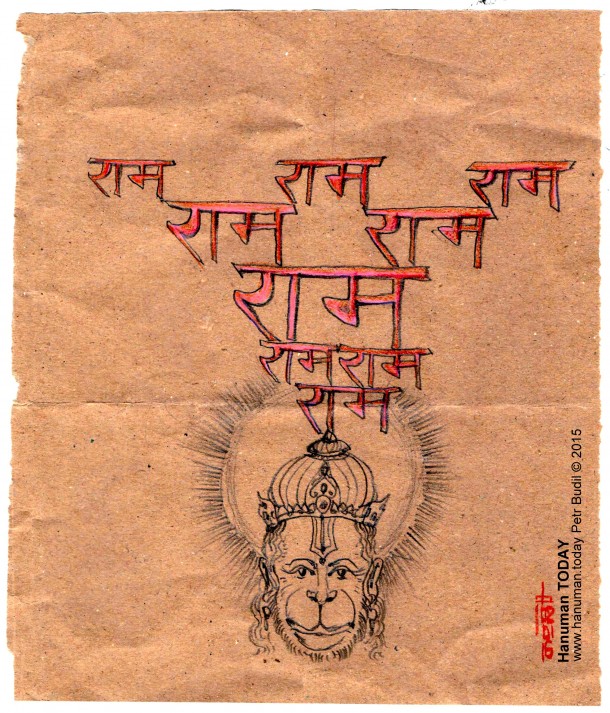 राम राम राम
राम राम
राम
राम राम
राम
Hanuman TODAY
www.hanuman.today Petr Budil © 2015